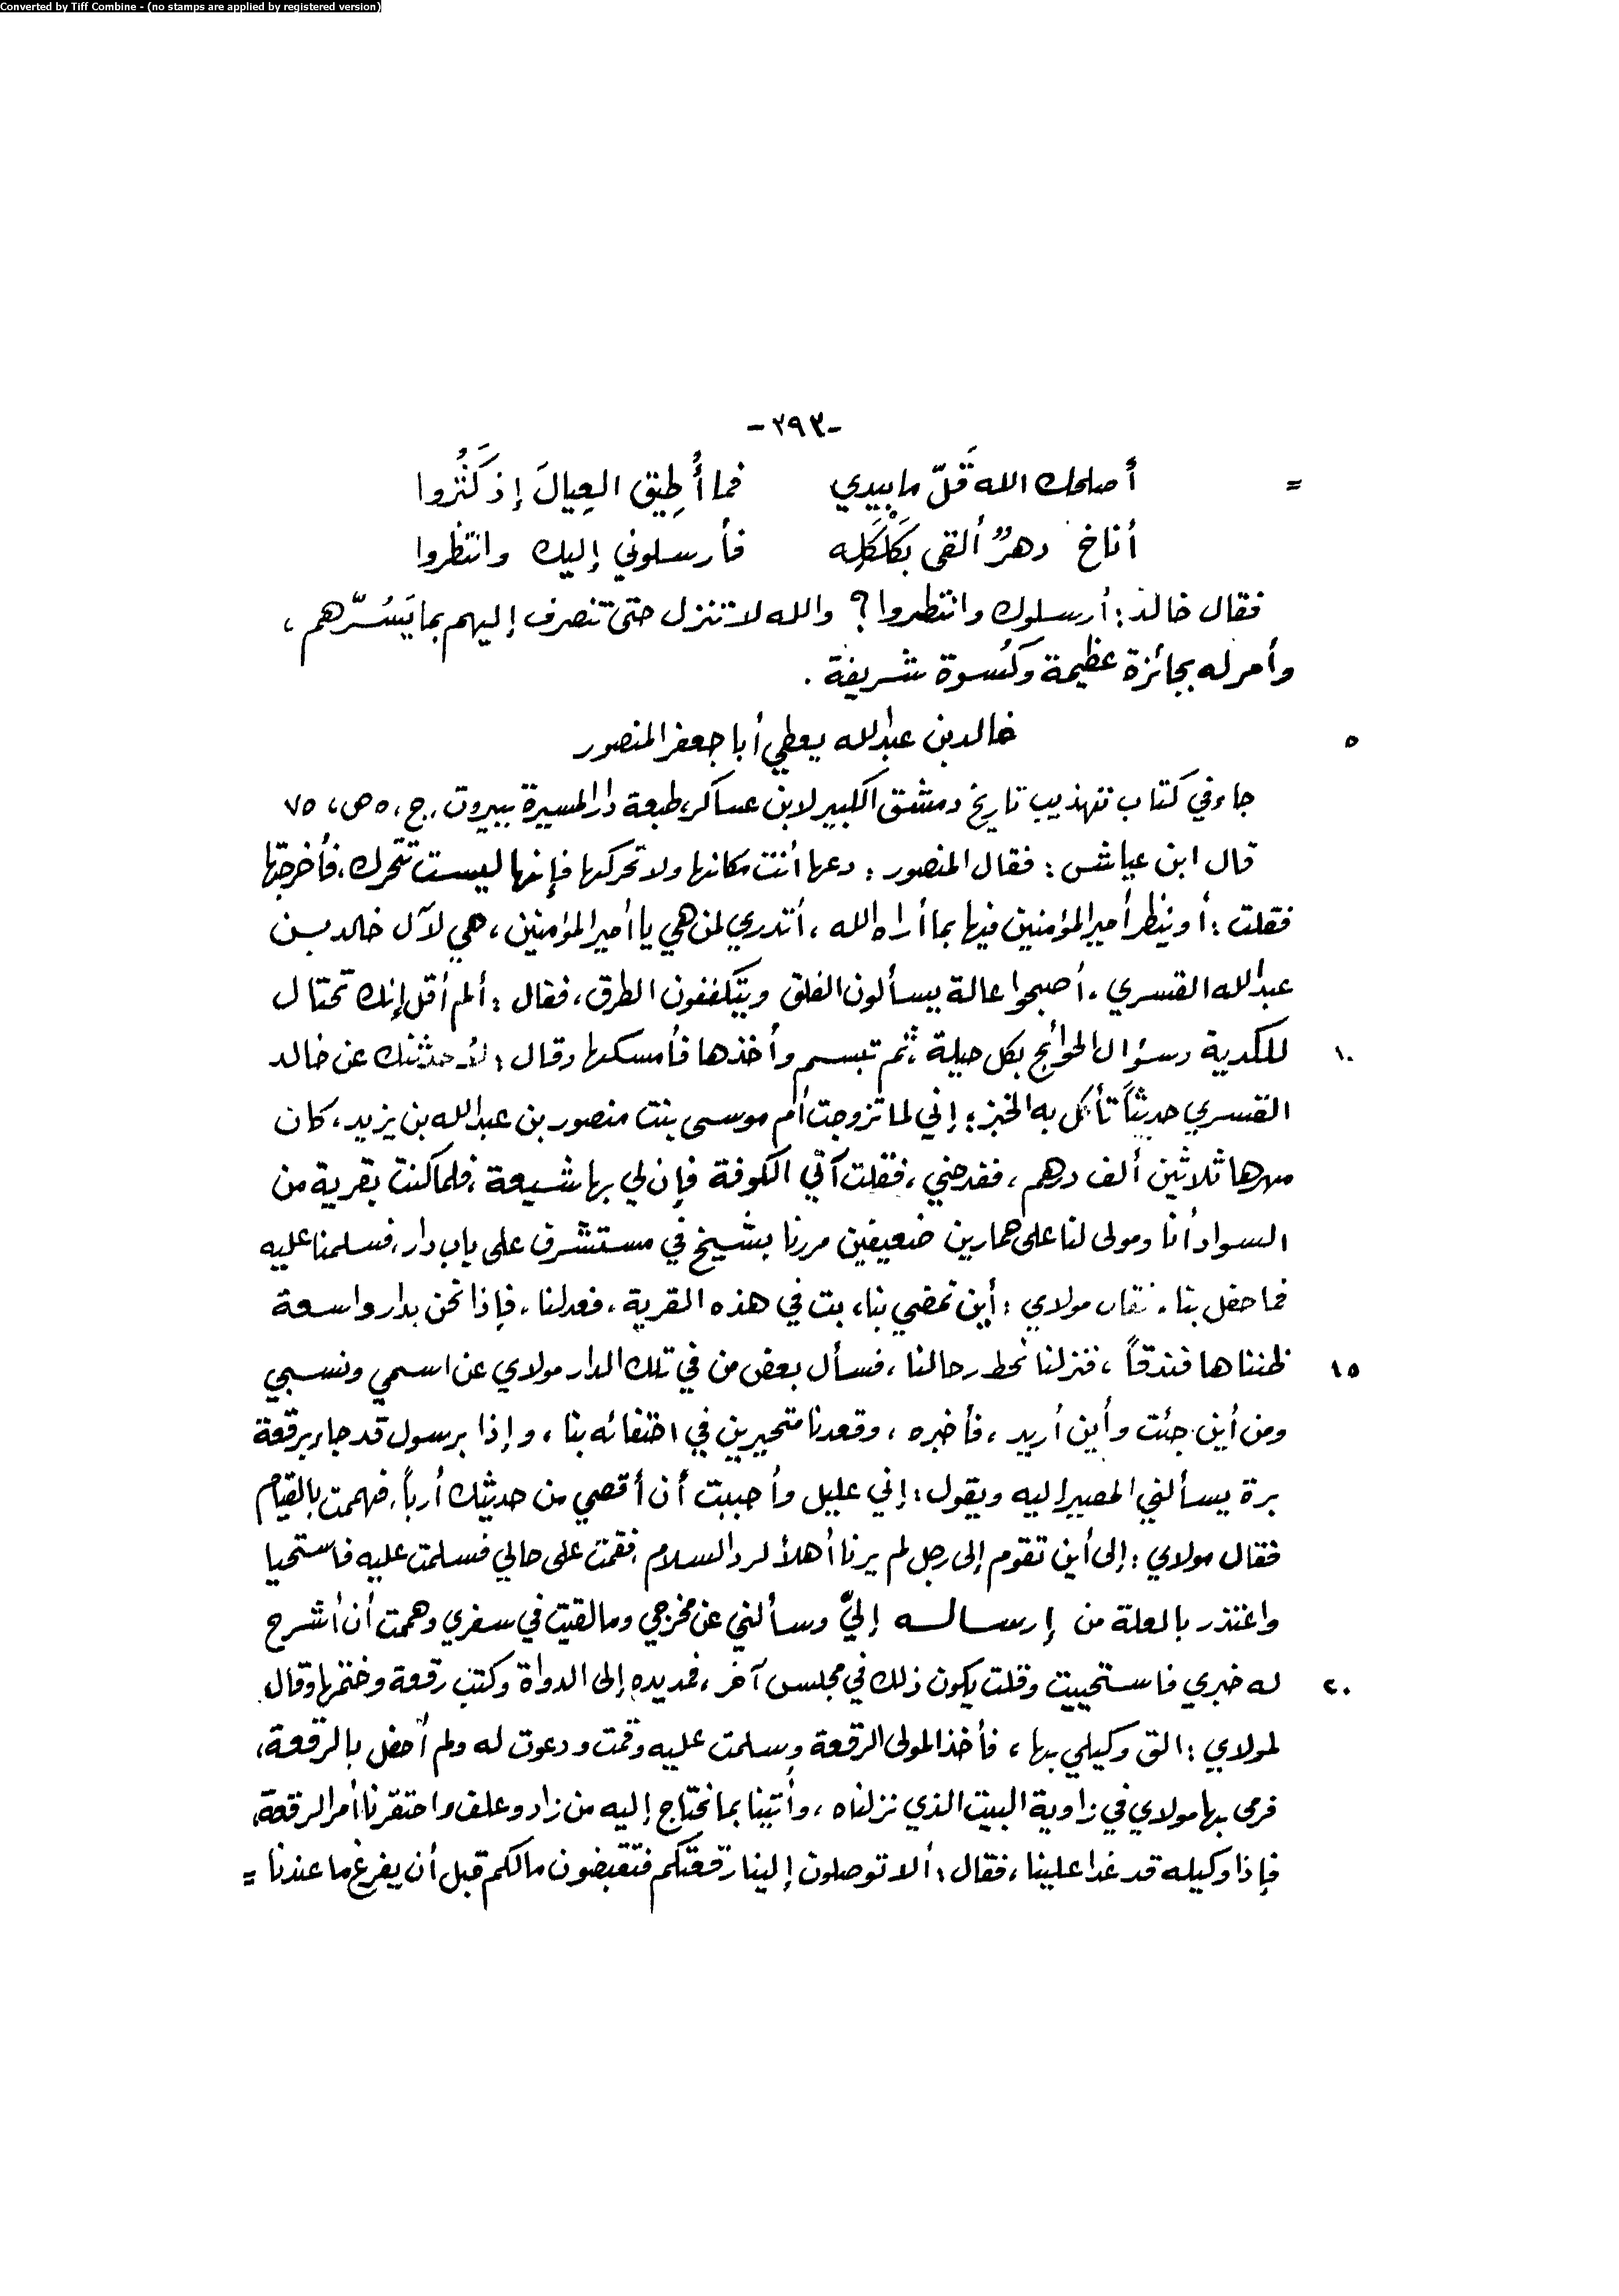 Converted by Tiff Combine - (no stamps are applied by registered version)
-٢٩٣-
= أصلحك الله قَلّ ما بيدي فما أُطِيق العِيالَ إذ كَثُروا
أناخ دهرٌ ألقى بَكَلْكَلِه فأرسلوني إليك وانتظروا
فقال خالد: أرسلوك وانتظروا؟ والله لا تنزل حتى تنصرف إليهم بما يَسُرّهم،
وأمر له بجائزة عظيمة وكُسوة شريفة.
٥ خالد بن عبدالله يعطي أبا جعفر المنصور
جاء في كتاب تهذيب تاريخ دمشق الكبير لابن عساكر، طبعة دار المسيرة ببيروت. ج، ٥ ص، ٧٥
قال ابن عياش: فقال المنصور: دعها أنت مكانها ولا تحركها فإنها ليست تتحرك، فأخرجتها
فقلت: أو ينظر أمير المؤمنين فيها بما أراه الله، أتدري لمن هي يا أمير المؤمنين، هي لآل خالد بن
عبدالله القسري، أصبحوا عالة يسألون الفلق ويتكففون الطرق، فقال: ألم أقل إنك تحتال
١٠ للكدية وسؤال الحوائج بكل حيلة، ثم تبسم وأخذها فأمسكها وقال: لأحدثنك عن خالد
القسري حديثاً تأكل به الخبز: إني لما تزوجت أم موسى بنت منصور بن عبدالله بن يزيد، كان
مهرها ثلاثين ألف درهم، ففدحني، فقلت آتي الكوفة فإن لي بها شيعة، فلما كنت بقرية من
السواد أنا ومولى لنا على حمارين ضعيفين مررنا بشيخ في مستشرف على باب دار، فسلمنا عليه
فما حفل بنا، فقال مولاي: أين تمضي بنا، بت في هذه القرية، فعدلنا، فإذا نحن بدار واسعة
١٥ ظنناها فندقاً، فنزلنا نحط رحالنا، فسأل بعض من في تلك الدار مولاي عن اسمي ونسبي
ومن أين جئت وأين أريد، فأخبره، وقعدنا متحيرين في اختفائه بنا، وإذا برسول قد جاء برقعة
برة يسألني المصير إليه ويقول: إني عليل وأحببت أن أقضي من حديثك أرباً، فهممت بالقيام
فقال مولاي: إلى أين تقوم إلى رجل لم يرنا أهلاً لرد السلام، فقمت على حالي فسلمت عليه فاستحيا
واعتذر بالعلة من إرساله إليّ وسألني عن مخرجي وما لقيت في سفري وهممت أن أشرح
٢٠ له خبري فاستحييت وقلت يكون ذلك في مجلس آخر، فمد يده إلى الدواة وكتب رقعة وختمها وقال
لمولاي: الق وكيلي بها، فأخذ المولى الرقعة وسلمت عليه وقمت ودعوت له ولم أحفل بالرقعة،
فرمى بها مولاي في زاوية البيت الذي نزلناه، وأتينا بما نحتاج إليه من زاد وعلف واحتقرنا أمر الرقعة،
فإذا وكيله قد غدا علينا، فقال: ألا توصلون إلينا رقعتكم فتقبضون مالكم قبل أن يفرغ ما عندنا =